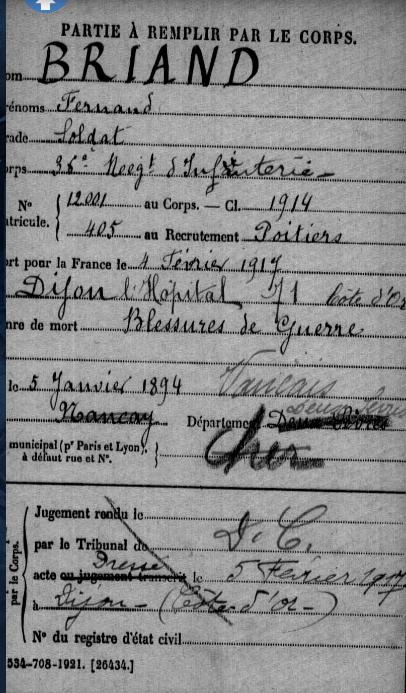 PARTIE À REMPLIR PAR LE CORPS.
om BRIAND
rénoms Fernand
rade Soldat
rps 35e Regt d'Infanterie
N° 12001 au Corps. — Cl. 1914
atricule. 405 au Recrutement Poitiers
rt pour la France le 4 Février 1917
Dijon l'Hôpital 71 Côte d'Or
nre de mort Blessures de Guerre
le 5 Janvier 1894 Vançais
Nançay Département Deux Sèvres
Deux Sèvres
Cher
municipal (pr Paris et Lyon),
à défaut rue et N°.
par le Corps.
Jugement rendu le
par le Tribunal de D.C.
Dressé
acte ou jugement transcrit le 5 Février 1917
à Dijon - (Côte d'Or -)
N° du registre d'état civil
534-708-1921. [26434.]